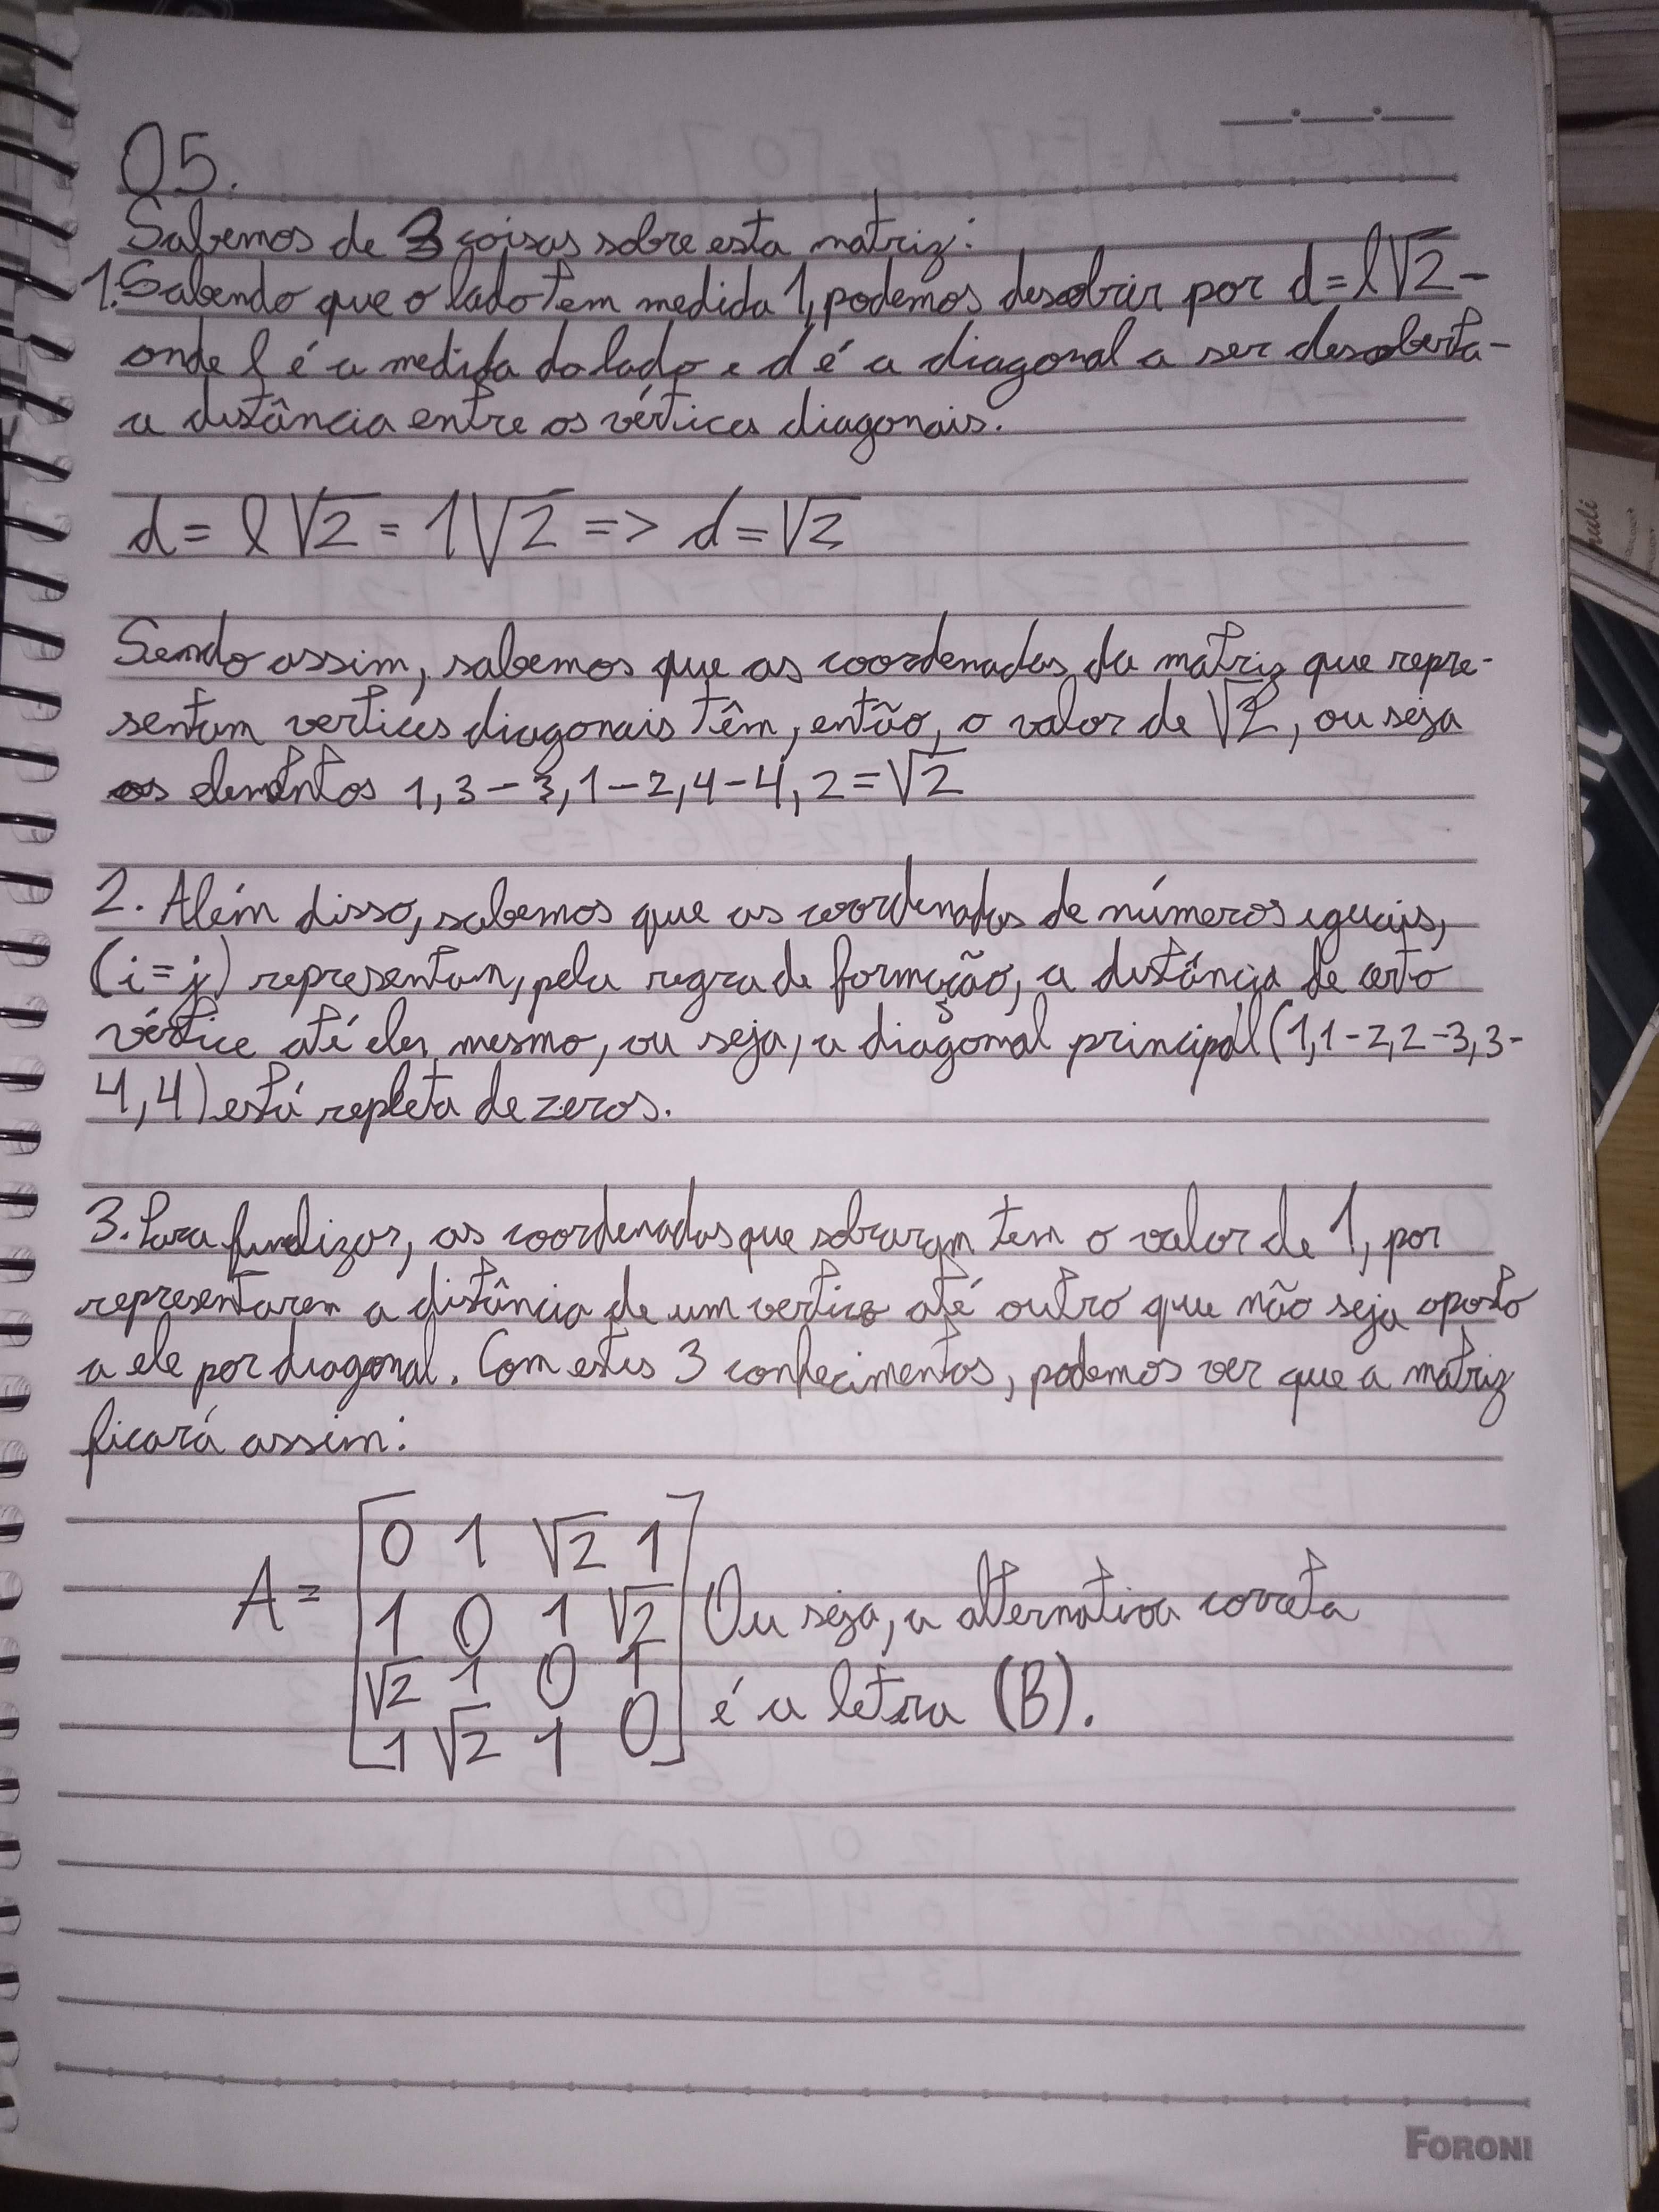 05.
Sabemos de 3 coisas sobre esta matriz:
1. Sabendo que o lado tem medida 1, podemos descobrir por d=l√2 -
onde l é a medida do lado e d é a diagonal a ser descoberta -
a distância entre os vértices diagonais.
d = l√2 = 1√2 => d=√2
Sendo assim, sabemos que as coordenadas da matriz que repre-
sentam vertices diagonais têm, então, o valor de √2, ou seja
os elementos 1,3 - 3,1 - 2,4 - 4,2 = √2
2. Além disso, sabemos que as coordenadas de números iguais,
(i=j) representam, pela regra de formação, a distância de certo
vértice até eles mesmo, ou seja, a diagonal principal (1,1-2,2-3,3-
4,4) está repleta de zeros.
3. Para finalizar, as coordenadas que sobraram tem o valor de 1, por
representarem a distância de um vertice até outro que não seja oposto
a ele por diagonal. Com estes 3 conhecimentos, podemos ver que a matriz
ficará assim:
0 1 √2 1
A = 1 0 1 √2 Ou seja, a alternativa correta
√2 1 0 1
é a letra (B).
1 √2 1 0
FORONI